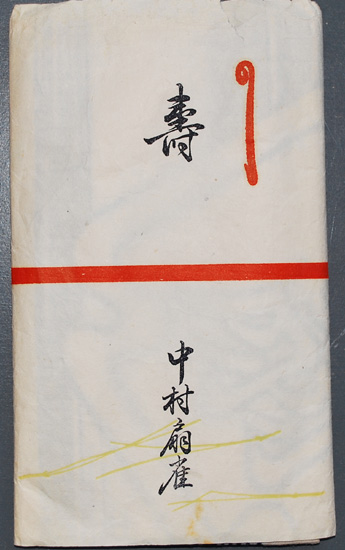 寿
中村扇雀